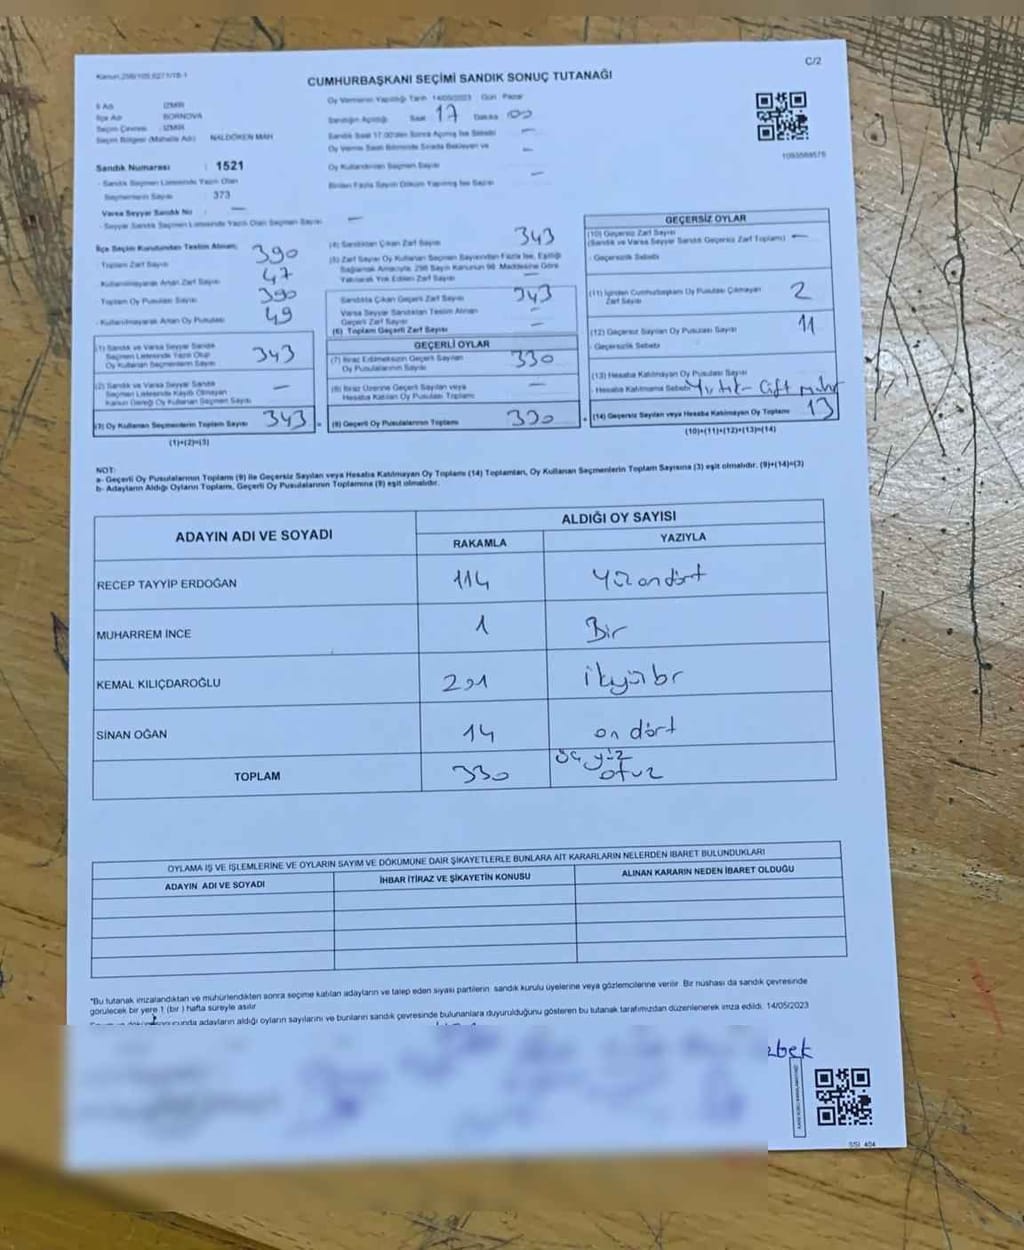 C/2
CUMHURBAŞKANI SEÇİMİ SANDIK SONUÇ TUTANAĞI
İl Adı : İZMİR
İlçe Adı : BORNOVA
Seçim Çevresi : İZMİR
Seçim Bölgesi (Mahalle Adı) : NALDÖKEN MAH
Sandık Numarası : 1521
- Sandık Seçmen Listesinde Yazılı Olan
Seçmenlerin Sayısı : 373
Varsa Seyyar Sandık No : —
- Seyyar Sandık Seçmen Listesinde Yazılı Olan Seçmen Sayısı —
Oy Vermenin Yapıldığı Tarih 14/05/2023 Gün Pazar
Sandığın Açıldığı Saat 17 Dakika 00
Sandık Saat 17.00'den Sonra Açılmış İse Sebebi —
Oy Verme Saati Bitiminde Sırada Bekleyen ve
Oy Kullandırılan Seçmen Sayısı —
Birden Fazla Sayım Döküm Yapılmış İse Sayısı —
1093569575
İlçe Seçim Kurulundan Teslim Alınan;
Toplam Zarf Sayısı 390
Kullanılmayarak Artan Zarf Sayısı 47
Toplam Oy Pusulası Sayısı 390
- Kullanılmayarak Artan Oy Pusulası 49
(1) Sandık ve Varsa Seyyar Sandık
Seçmen Listesinde Yazılı Olup
Oy Kullanan Seçmenlerin Sayısı 343
(2) Sandık ve Varsa Seyyar Sandık
Seçmen Listesinde Kayıtlı Olmayan
Kanun Gereği Oy Kullanan Seçmen Sayısı —
(3) Oy Kullanan Seçmenlerin Toplam Sayısı 343
(1)+(2)=(3)
(4) Sandıktan Çıkan Zarf Sayısı 343
(5) Zarf Sayısı Oy Kullanan Seçmen Sayısından Fazla İse, Eşitliği
Sağlamak Amacıyla, 298 Sayılı Kanunun 98. Maddesine Göre
Yakılarak Yok Edilen Zarf Sayısı —
Sandıkta Çıkan Geçerli Zarf Sayısı 343
Varsa Seyyar Sandıktan Teslim Alınan
Geçerli Zarf Sayısı —
(6) Toplam Geçerli Zarf Sayısı —
GEÇERLİ OYLAR
(7) İtiraz Edilmeksizin Geçerli Sayılan
Oy Pusulalarının Sayısı 330
(8) İtiraz Üzerine Geçerli Sayılan veya
Hesaba Katılan Oy Pusulası Toplamı —
(9) Geçerli Oy Pusulalarının Toplamı 330
GEÇERSİZ OYLAR
(10) Geçersiz Zarf Sayısı
(Sandık ve Varsa Seyyar Sandık Geçersiz Zarf Toplamı) —
- Geçersizlik Sebebi
(11) İçinden Cumhurbaşkanı Oy Pusulası Çıkmayan
Zarf Sayısı 2
(12) Geçersiz Sayılan Oy Pusulası Sayısı 11
- Geçersizlik Sebebi
(13) Hesaba Katılmayan Oy Pusulası Sayısı
- Hesaba Katılmama Sebebi Yırtık - Çift mühür
(14) Geçersiz Sayılan veya Hesaba Katılmayan Oy Toplamı 13
(10)+(11)+(12)+(13)=(14)
NOT:
a- Geçerli Oy Pusulalarının Toplamı (9) ile Geçersiz Sayılan veya Hesaba Katılmayan Oy Toplamı (14) Toplamları, Oy Kullanan Seçmenlerin Toplam Sayısına (3) eşit olmalıdır. (9)+(14)=(3)
b- Adayların Aldığı Oyların Toplamı, Geçerli Oy Pusulalarının Toplamına (9) eşit olmalıdır.
ADAYIN ADI VE SOYADI ALDIĞI OY SAYISI
RAKAMLA YAZIYLA
RECEP TAYYİP ERDOĞAN 114 Yüzondört
MUHARREM İNCE 1 Bir
KEMAL KILIÇDAROĞLU 201 ikiyüzbir
SİNAN OĞAN 14 on dört
TOPLAM 330 üç yüz
otuz
OYLAMA İŞ VE İŞLEMLERİNE VE OYLARIN SAYIM VE DÖKÜMÜNE DAİR ŞİKAYETLERLE BUNLARA AİT KARARLARIN NELERDEN İBARET BULUNDUKLARI
ADAYIN ADI VE SOYADI İHBAR İTİRAZ VE ŞİKAYETİN KONUSU ALINAN KARARIN NEDEN İBARET OLDUĞU
*Bu tutanak imzalandıktan ve mühürlendikten sonra seçime katılan adayların ve talep eden siyasi partilerin sandık kurulu üyelerine veya gözlemcilerine verilir. Bir nüshası da sandık çevresinde
görülecek bir yere 1 (bir) hafta süreyle asılır.
adayların aldığı oyların sayılarını ve bunların sandık çevresinde bulunanlara duyurulduğunu gösteren bu tutanak tarafımızdan düzenlenerek imza edildi. 14/05/2023